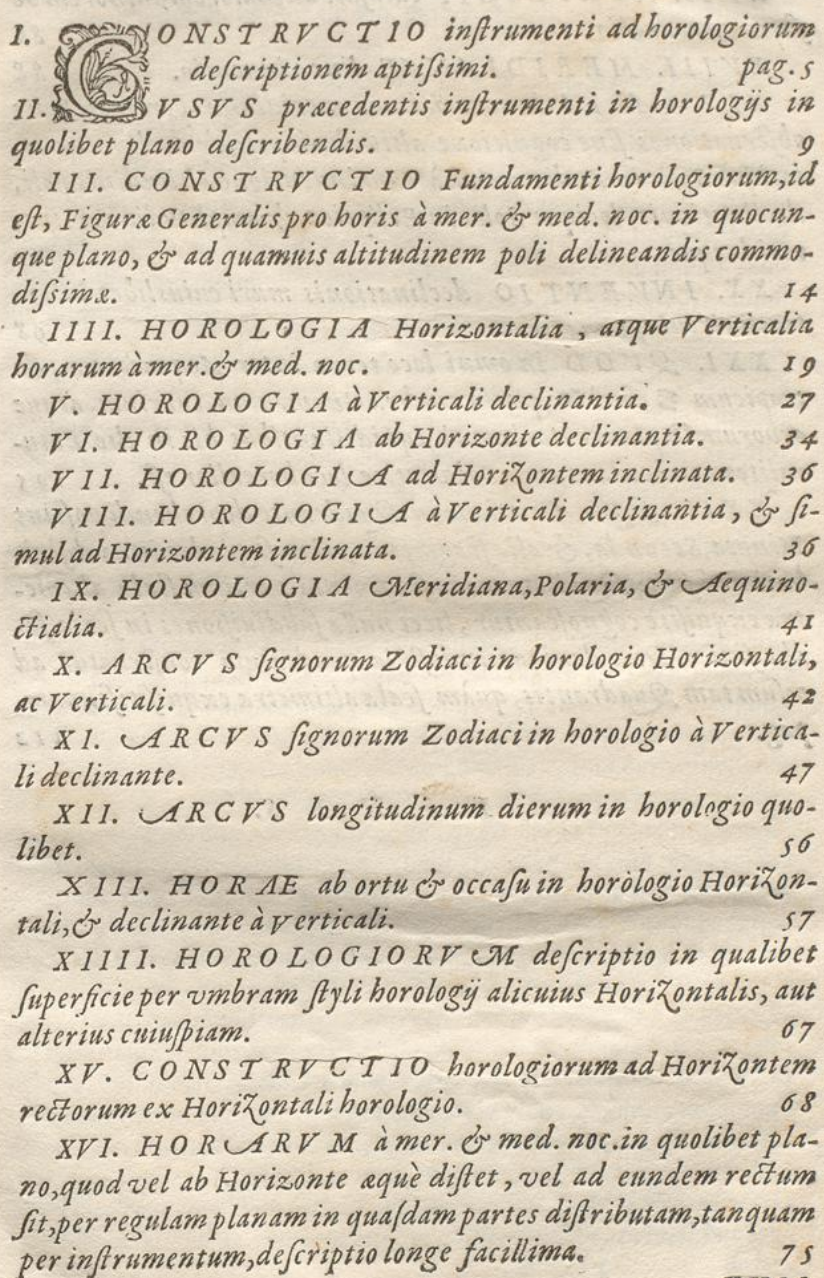 I. CONSTRVCTIO inſtrumenti ad horologiorum
deſcriptionem aptiſsimi. pag. 5
II. VSVS præcedentis inſtrumenti in horologijs in
quolibet plano deſcribendis. 9
III. CONSTRVCTIO Fundamenti horologiorum, id
eſt, Figuræ Generalis pro horis à mer. & med. noc. in quocun-
que plano, & ad quamuis altitudinem poli delineandis commo-
diſsimæ. 14
IIII. HOROLOGIA Horizontalia, atque Verticalia
horarum à mer. & med. noc. 19
V. HOROLOGIA à Verticali declinantia. 27
VI. HOROLOGIA ab Horizonte declinantia. 34
VII. HOROLOGIA ad Horizontem inclinata. 36
VIII. HOROLOGIA à Verticali declinantia, & ſi-
mul ad Horizontem inclinata. 36
IX. HOROLOGIA Meridiana, Polaria, & Aequino-
ctialia. 41
X. ARCVS ſignorum Zodiaci in horologio Horizontali,
ac Verticali. 42
XI. ARCVS ſignorum Zodiaci in horologio à Vertica-
li declinante. 47
XII. ARCVS longitudinum dierum in horologio quo-
libet. 56
XIII. HORAE ab ortu & occaſu in horologio Horizon-
tali, & declinante à Verticali. 57
XIIII. HOROLOGIORVM deſcriptio in qualibet
ſuperficie per vmbram ſtyli horologij alicuius Horizontalis, aut
alterius cuiuſpiam. 67
XV. CONSTRVCTIO horologiorum ad Horizontem
rectorum ex Horizontali horologio. 68
XVI. HORARVM à mer. & med. noc. in quolibet pla-
no, quod vel ab Horizonte æquè diſtet, vel ad eundem rectum
ſit, per regulam planam in quaſdam partes diſtributam, tanquam
per inſtrumentum, deſcriptio longe facillima. 75